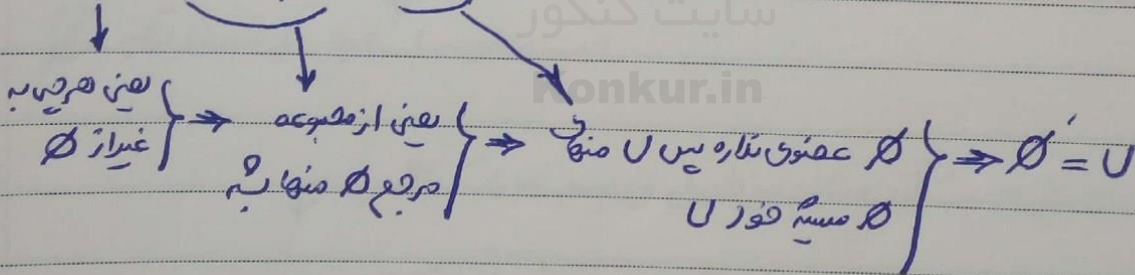 سایت کنکور
Konkur.in
یعنی هرچی به
غیر از Ø
} ⇒
یعنی از مجموعه
مرجع Ø منها بشه
} ⇒
Ø عضوی نداره پس U منهای
Ø میشه خود U
} ⇒ Ø′ = U